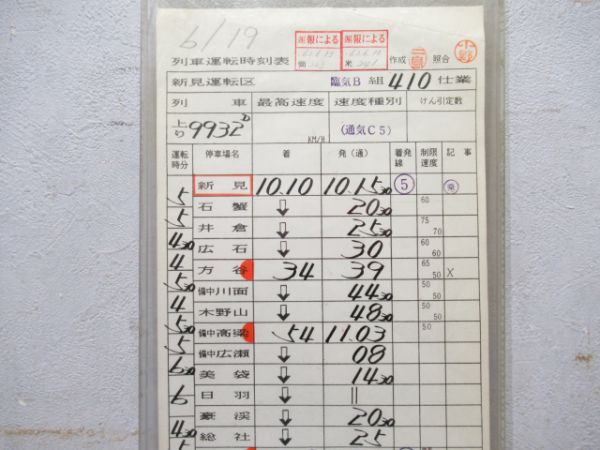 6/19
報による
報による
列車運転時刻表
作成
照合
新見運転区 臨気B 組 410 仕業
列 車 最高速度 速度種別 けん引定数
上り 9932D KM/H (通気C5)
運転時分 停車場名 着 発(通) 着発線 制限速度 記事
新見 10.10 10.15 30 ⑤
5
石蟹 ⇩ 20 30 60
5
井倉 ⇩ 25 30 75 70
4 30
広石 ⇩ 30 60 60
4
方谷 34 39 65 50 X
5 30
備中川面 ⇩ 44 30 50 50
4
木野山 ⇩ 48 30 50 50
5 30
備中高梁 54 11.03 50
5
備中広瀬 ⇩ 08
6 30
美袋 ⇩ 14 30
日羽 ⇩ ||
6
豪渓 ⇩ 20 30
4 30
総社 ⇩ 25
5